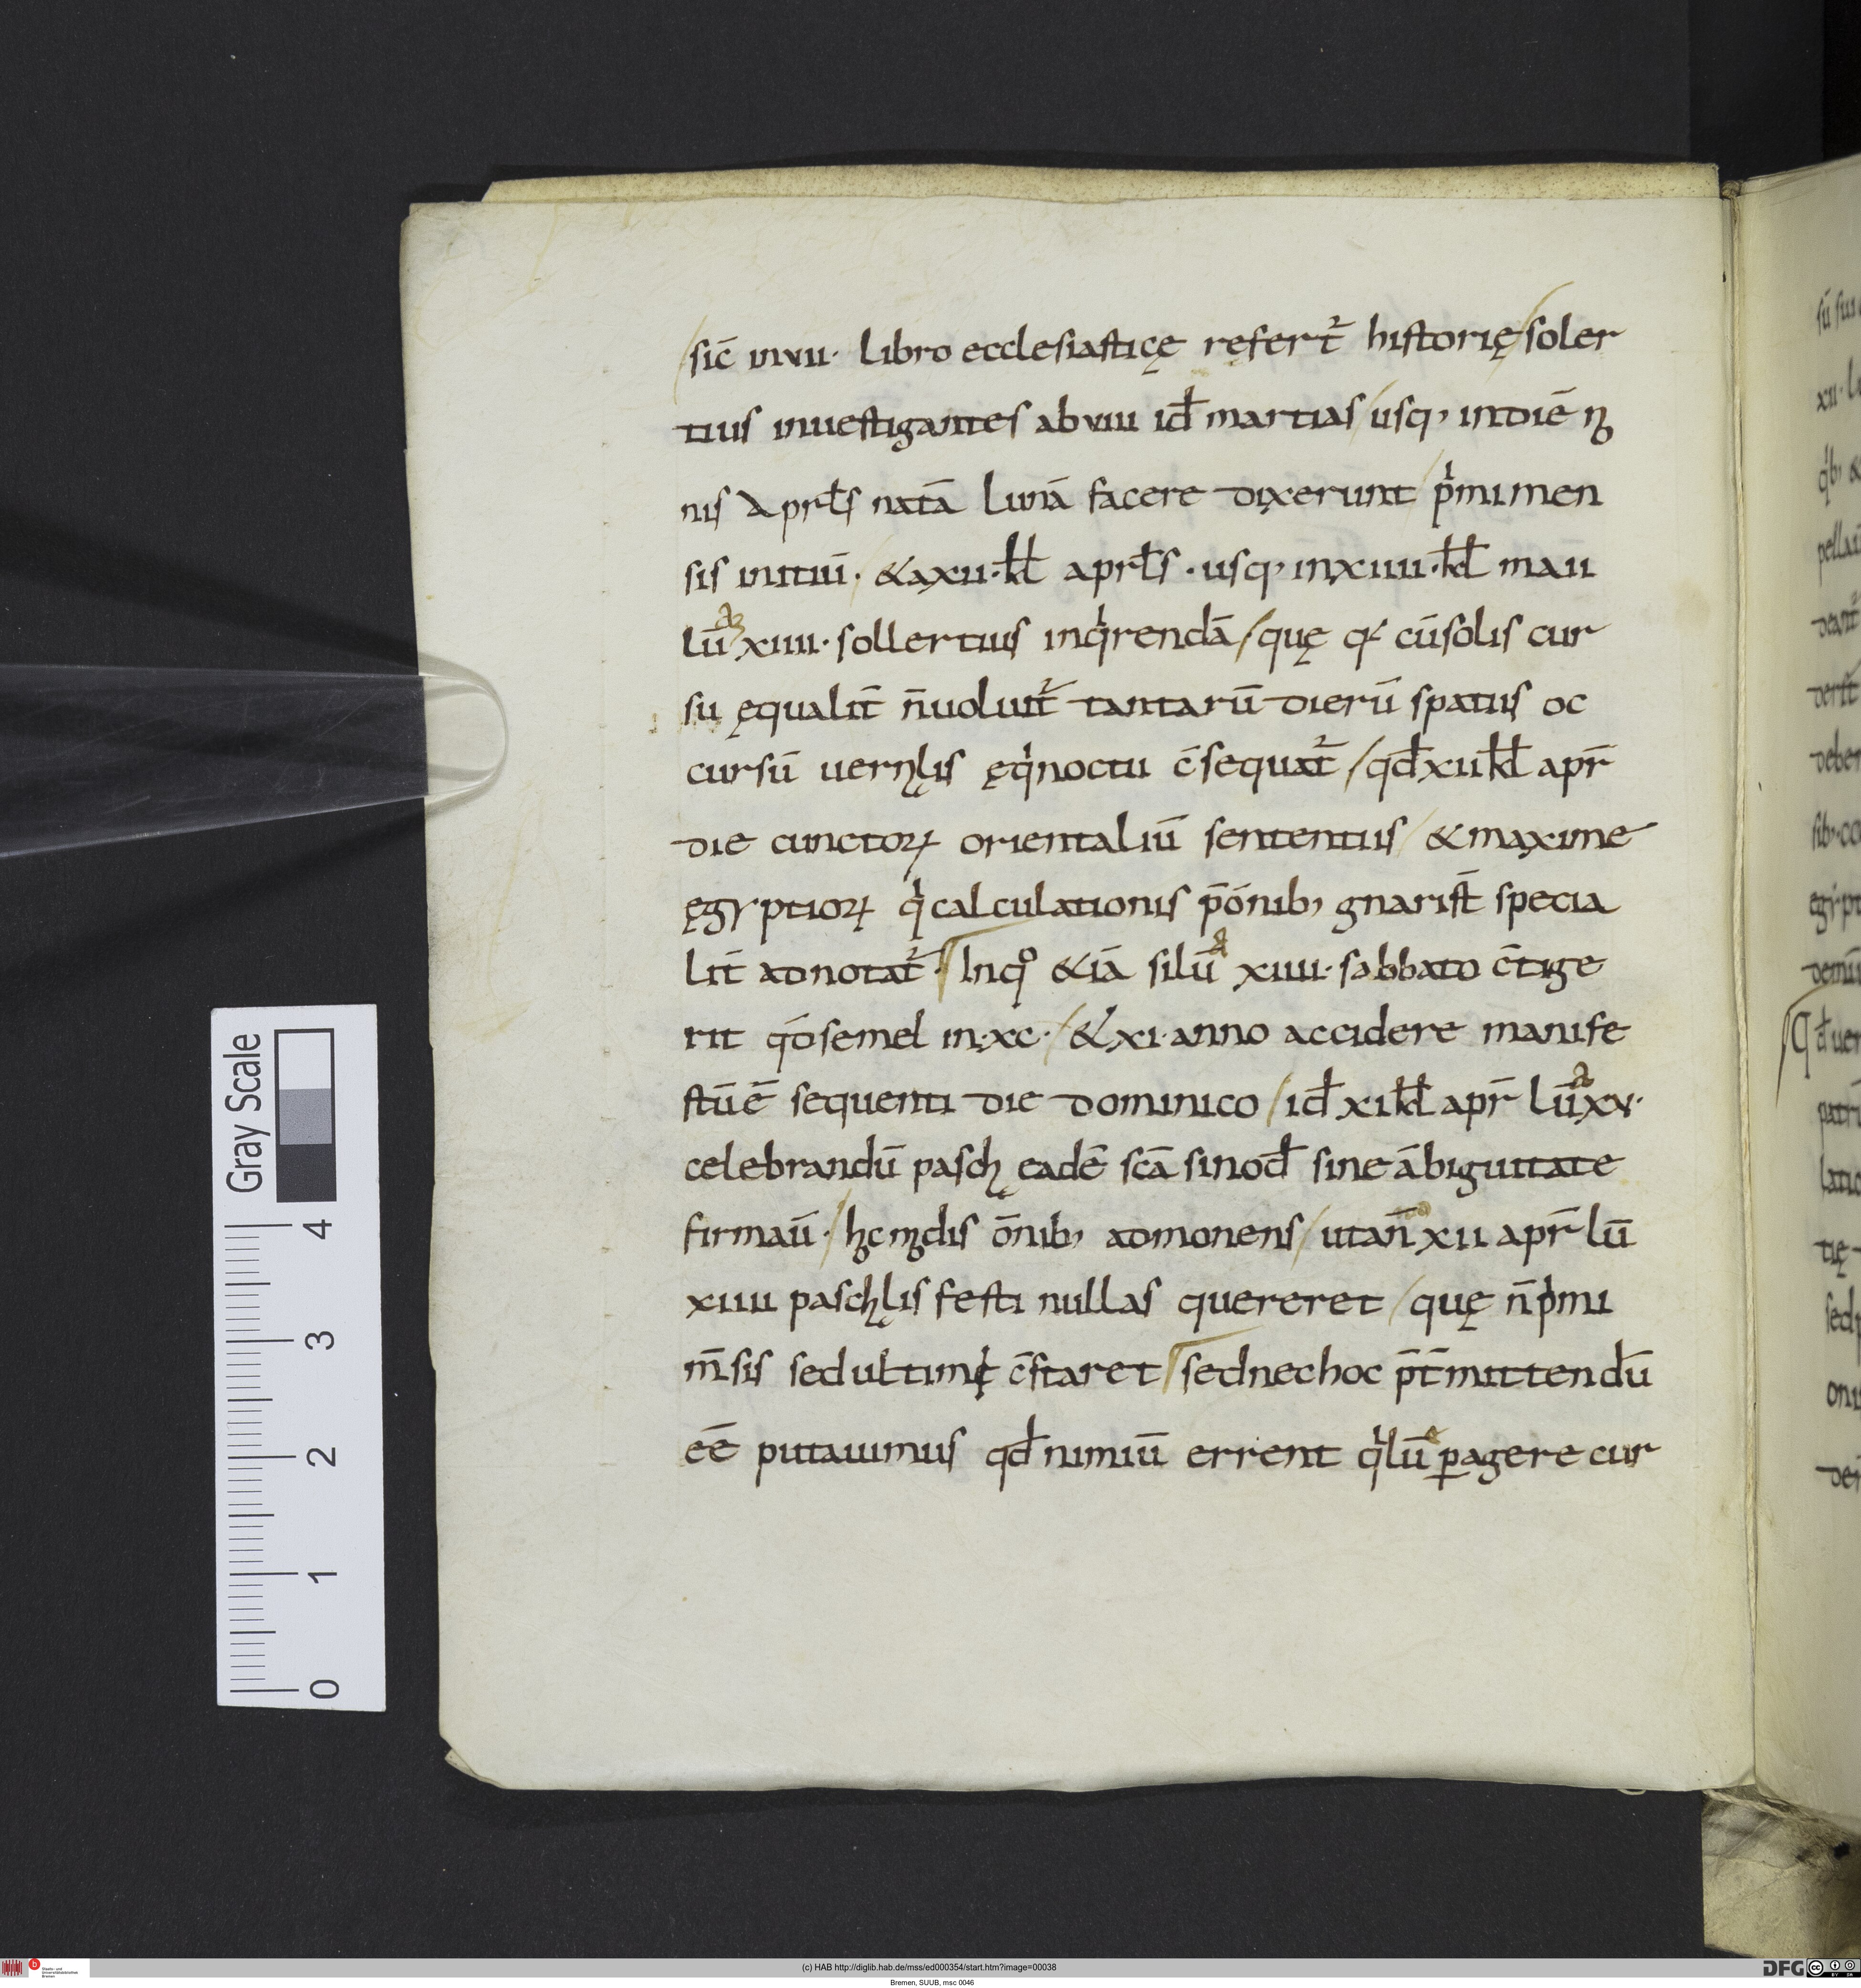 sic̄ in vii· libro ecclesiasticę refert̄ historię soler
tius inuestigantes ab viii id̄ martias usq, in diē ɴ
nis Aprl̄s natā lunā facere dixerunt pⁱmi men
sis initiū· & a xii· kl̄ aprl̄s· usq, in xiiii· kl̄ maii
lūā xiiii· sollertius inqⁱrendā quę q cū solis cur
su ęqualit̄ n̄ uoluit̄ tantarū dierū spatiis oc
cursū uernalis ęqⁱnoctii c̄sequat̄ qd̄ xii kl̄ apr̄
die cunctoꝝ orientaliū sententiis & maxime
ęgyptioꝝ qⁱ calculationis p̄ ōnib, gnari st̄ specia
lit̄ adnotat̄· In qͦ &iā si lūᵃ xiiii· sabbato c̄tige
rit qd́ semel in· xc· & xi· anno accidere manife
stū ē sequenti die dominico id̄ xi kl̄ apr̄ lūᵃ xv·
celebrandū pascha eadē scā sinod̄ sine ābiguitate
firmaū· hc mdis ōnib, admonens ut an̄ xii apr̄ lū
xiiii paschalis festi nullas quereret quę n̄ pⁱmi
m̄sis sed ultimi c̄staret sed nec hoc p̄t̄mittendū
eē putauimus qd̄ nimiū errent qⁱ lūᵉ ꝑagere cur
Gray Scale
4
3
2
1
0
(c) HAB http://diglib.hab.de/mss/ed000354/start.htm?image=00038
Bremen, SUUB, msc 0046
DFG